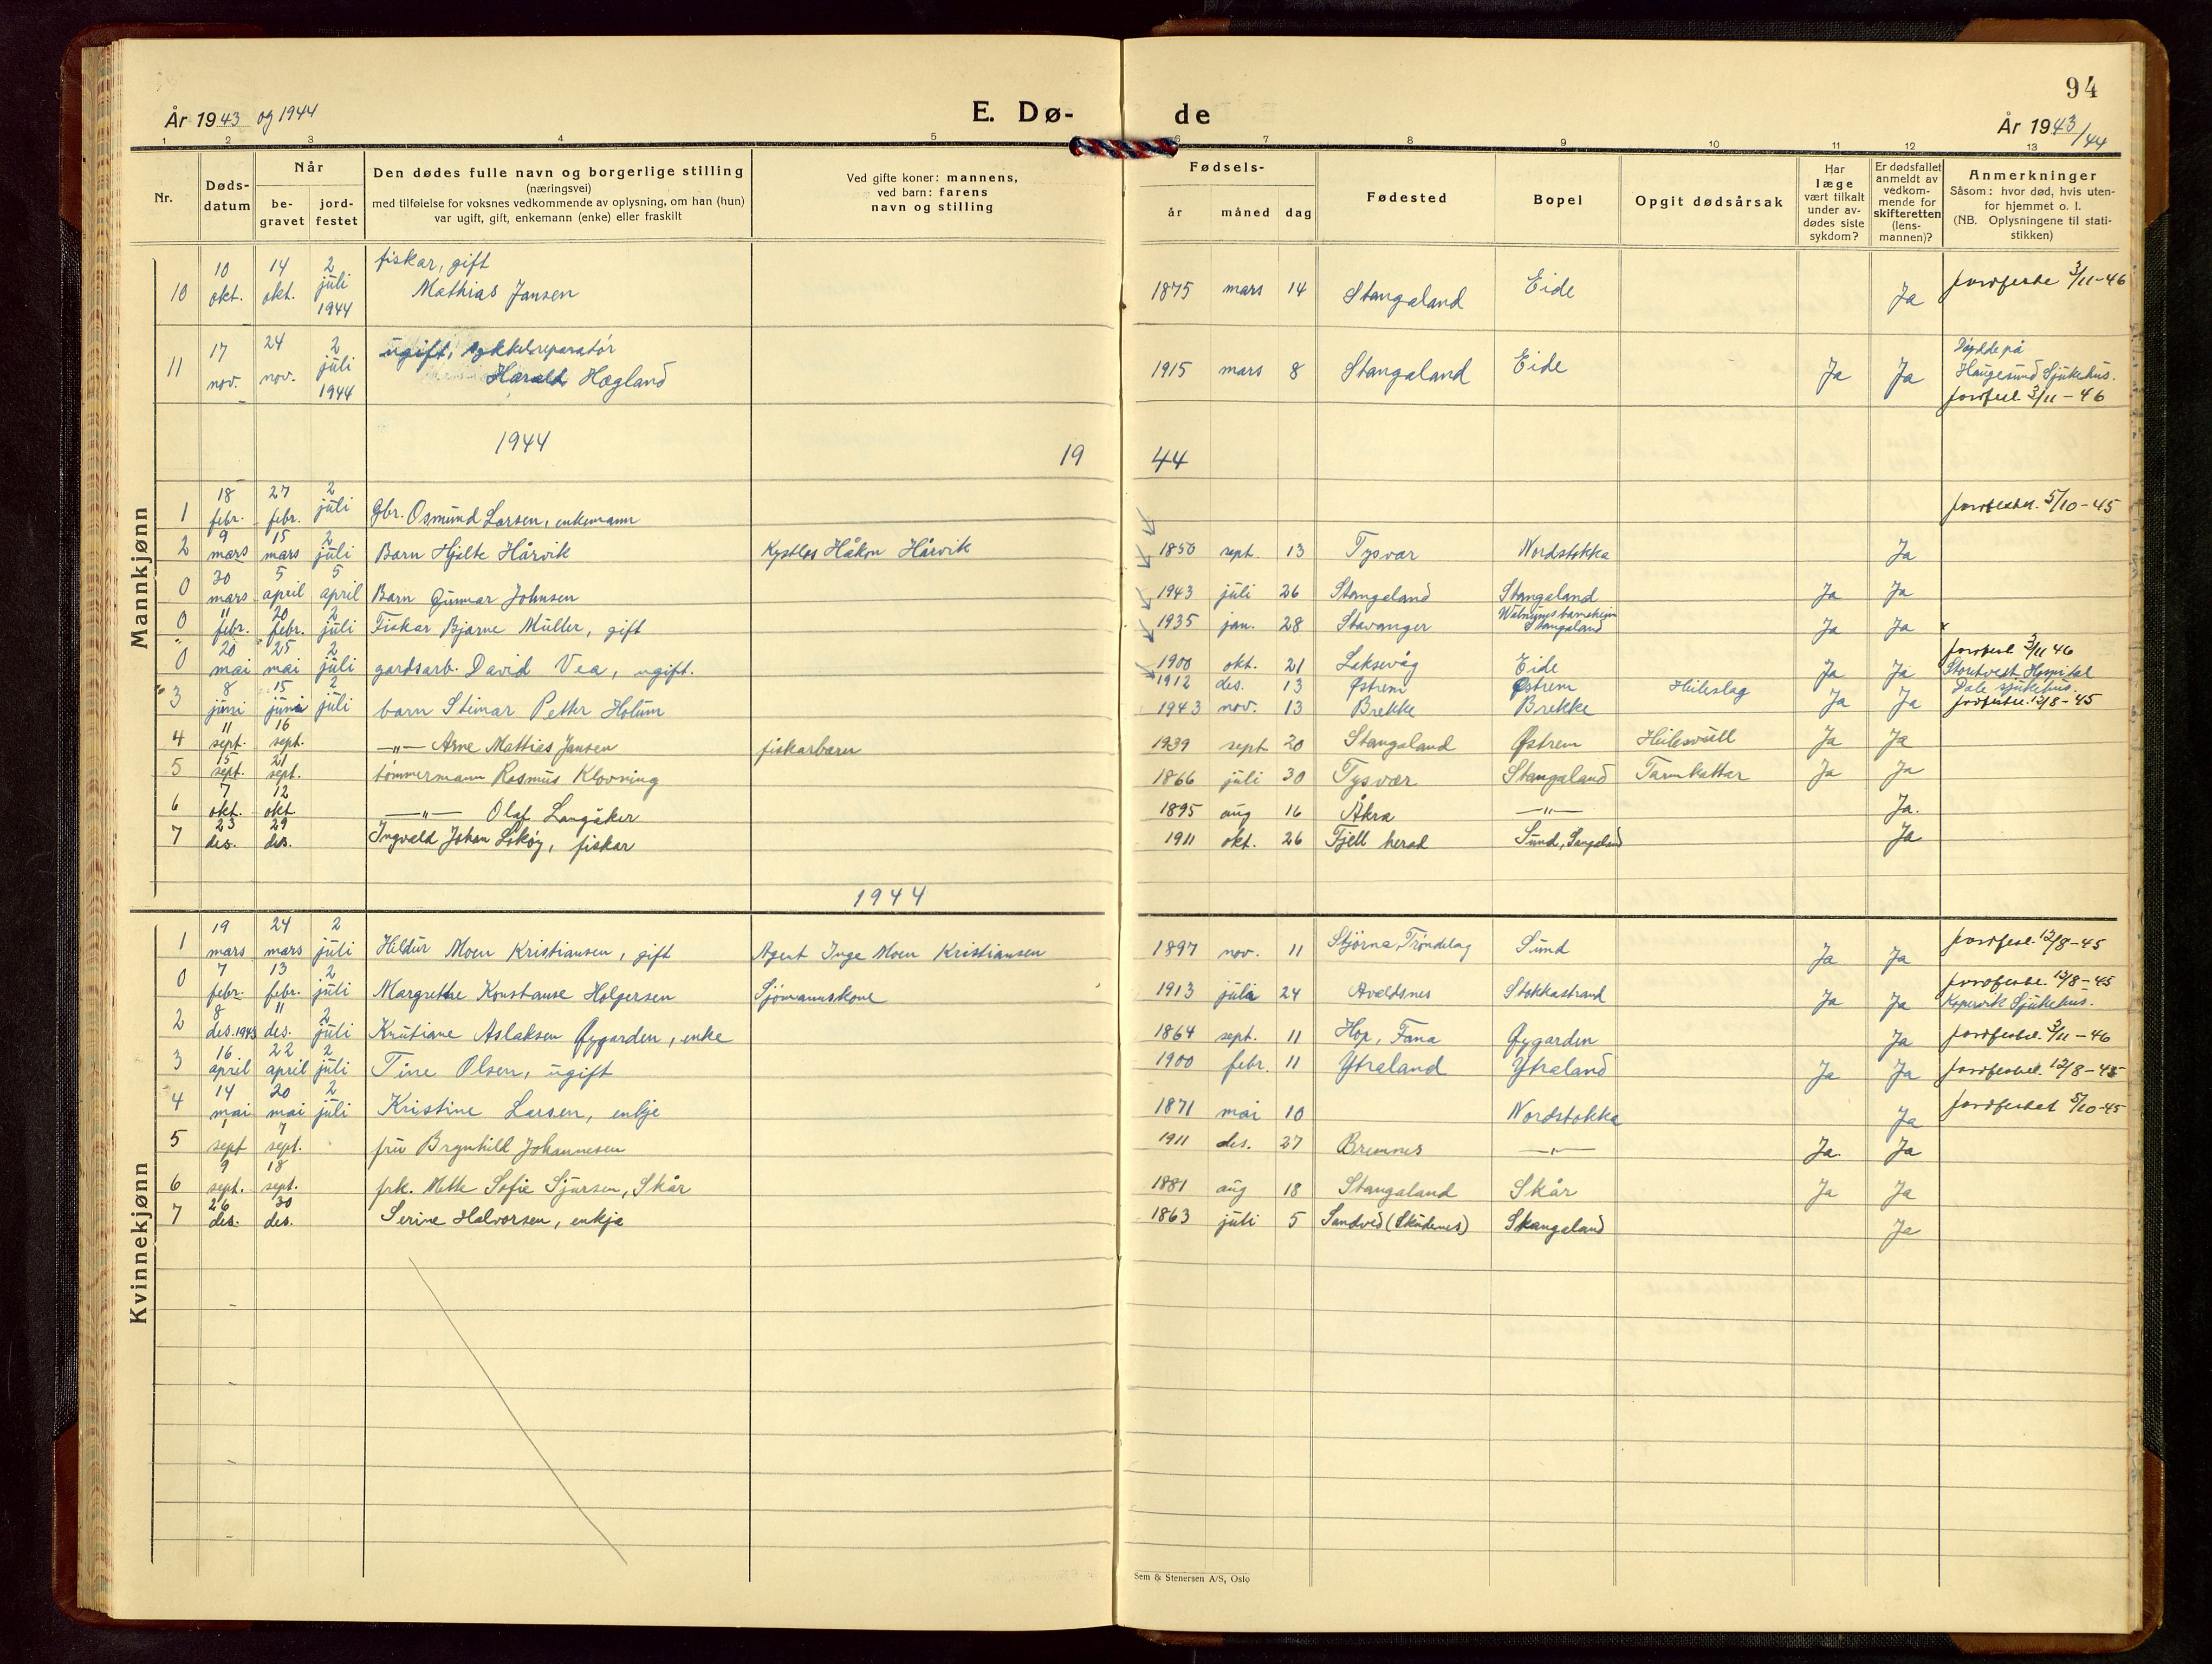 94
År 1943 og 1944
E. Dø- de
År 1943/44
1 2 3 4 5 6 7 8 9 10 11 12 13
Nr.
Døds-
datum
Når
be-
gravet
jord-
festet
Den dødes fulle navn og borgerlige stilling
(næringsvei)
med tilføielse for voksnes vedkommende av oplysning, om han (hun)
var ugift, gift, enkemann (enke) eller fraskilt
Ved gifte koner: mannens,
ved barn: farens
navn og stilling
Fødsels-
år måned dag
Fødested
Bopel
Opgit dødsårsak
Har
læge
vært tilkalt
under av-
dødes siste
sykdom?
Er dødsfallet
anmeldt av
vedkom-
mende for
skifteretten
(lens-
mannen)?
Anmerkninger
Såsom: hvor død, hvis uten-
for hjemmet o. l.
(NB. Oplysningene til stati-
stikken)
Mannkjønn
10 10 okt. 14 okt. 2 juli 1944 fiskar, gift
Mathias Jansen 1875 mars 14 Stangaland Eide Ja jordfeste 3/11-46
11 17 nov. 24 nov. 2 juli 1944 ugift, sykkelreparatør
Harald Hægland 1915 mars 8 Stangaland Eide Ja Ja Døydde på
Haugesund Sjukehus.
jordfest. 3/11-46
1944 19 44
1 18 febr. 27 febr. 2 juli Gbr. Osmund Larsen, enkemann jordfestet. 5/10-45
2 9 mars 15 mars 2 juli Barn Hjalte Hårvik Kystlos Håkon Hårvik 1850 sept. 13 Tysvær Nordstokka Ja
0 30 mars 5 april 5 april Barn Gunnar Johnsen 1943 juli 26 Stangaland Stangaland Ja Ja
0 11 febr. 20 febr. 2 juli Fiskar Bjarne Müller, gift 1935 jan. 28 Stavanger barneheim Stangaland Ja Ja
0 20 mai 25 mai 2 juli gardsarb. David Vea, ugift. 1900 okt. 21 Laksevåg Eide Ja Ja jordfest 3/11 46
Hospital
3 8 juni 15 juni 2 juli barn Steinar Petter Holum 1912 des. 13 Østrem Østrem Heileslag Ja Ja Dale sjukehus.
1943 nov. 13 Brekke Brekke jordfeste. 12/8-45
4 11 sept. 16 sept. —"— Arne Mathias Jansen fiskarbarn 1939 sept 20 Stangaland Østrem Ja Ja
5 15 sept. 21 sept. tømmermann Rasmus Klovning 1866 juli 30 Tysvær Stangaland Tarmkattar Ja Ja
6 7 okt. 12 okt —"— Olaf Langåker 1895 aug 16 Åkra —"— Ja.
7 23 des. 29 des. Ingvald Johan Lokøy, fiskar 1911 okt. 26 Fjell herad Sund, Ja
1944
Kvinnekjønn
1 19 mars 24 mars 2 juli Hildur Moen Kristiansen, gift Agent Inge Moen Kristiansen 1897 nov. 11 Stjørna, Trøndelag Sund Ja Ja jordfest. 12/8-45
0 7 febr. 13 febr. 2 juli Margrethe Konstanse Holgersen Sjømannskone 1913 juli 24 Avaldsnes Stokkastrand Ja Ja jordfeste. 12/8-45
Kopervik Sjukehus.
2 8 des. 1943 11 des. 2 juli Kristiane Aslaksen Øygarden, enke 1864 sept. 11 Hop, Fana Øygarden Ja jordfestet. 3/11-46
3 16 april 22 april 2 juli Tine Olsen, ugift 1900 febr. 11 Ytraland Ytraland Ja Ja jordfestet. 12/8-45
4 14 mai 20 mai 2 juli Kristine Larsen, enkje 1871 mai 10 Nordstokka Ja jordfestet 5/10-45
5 1 sept 7 sept. fru Brynhild Johannesen 1911 des. 27 Bremnes —"— Ja. Ja
6 9 sept. 18 sept. frk. Mette Sofie Sjursen, Skår 1881 aug 18 Stangaland Skår Ja Ja
7 26 des. 30 des. Serine Halvorsen, enkja 1863 juli 5 Sandved (Skudenes) Stangaland Ja
Sem & Stenersen A/S, Oslo